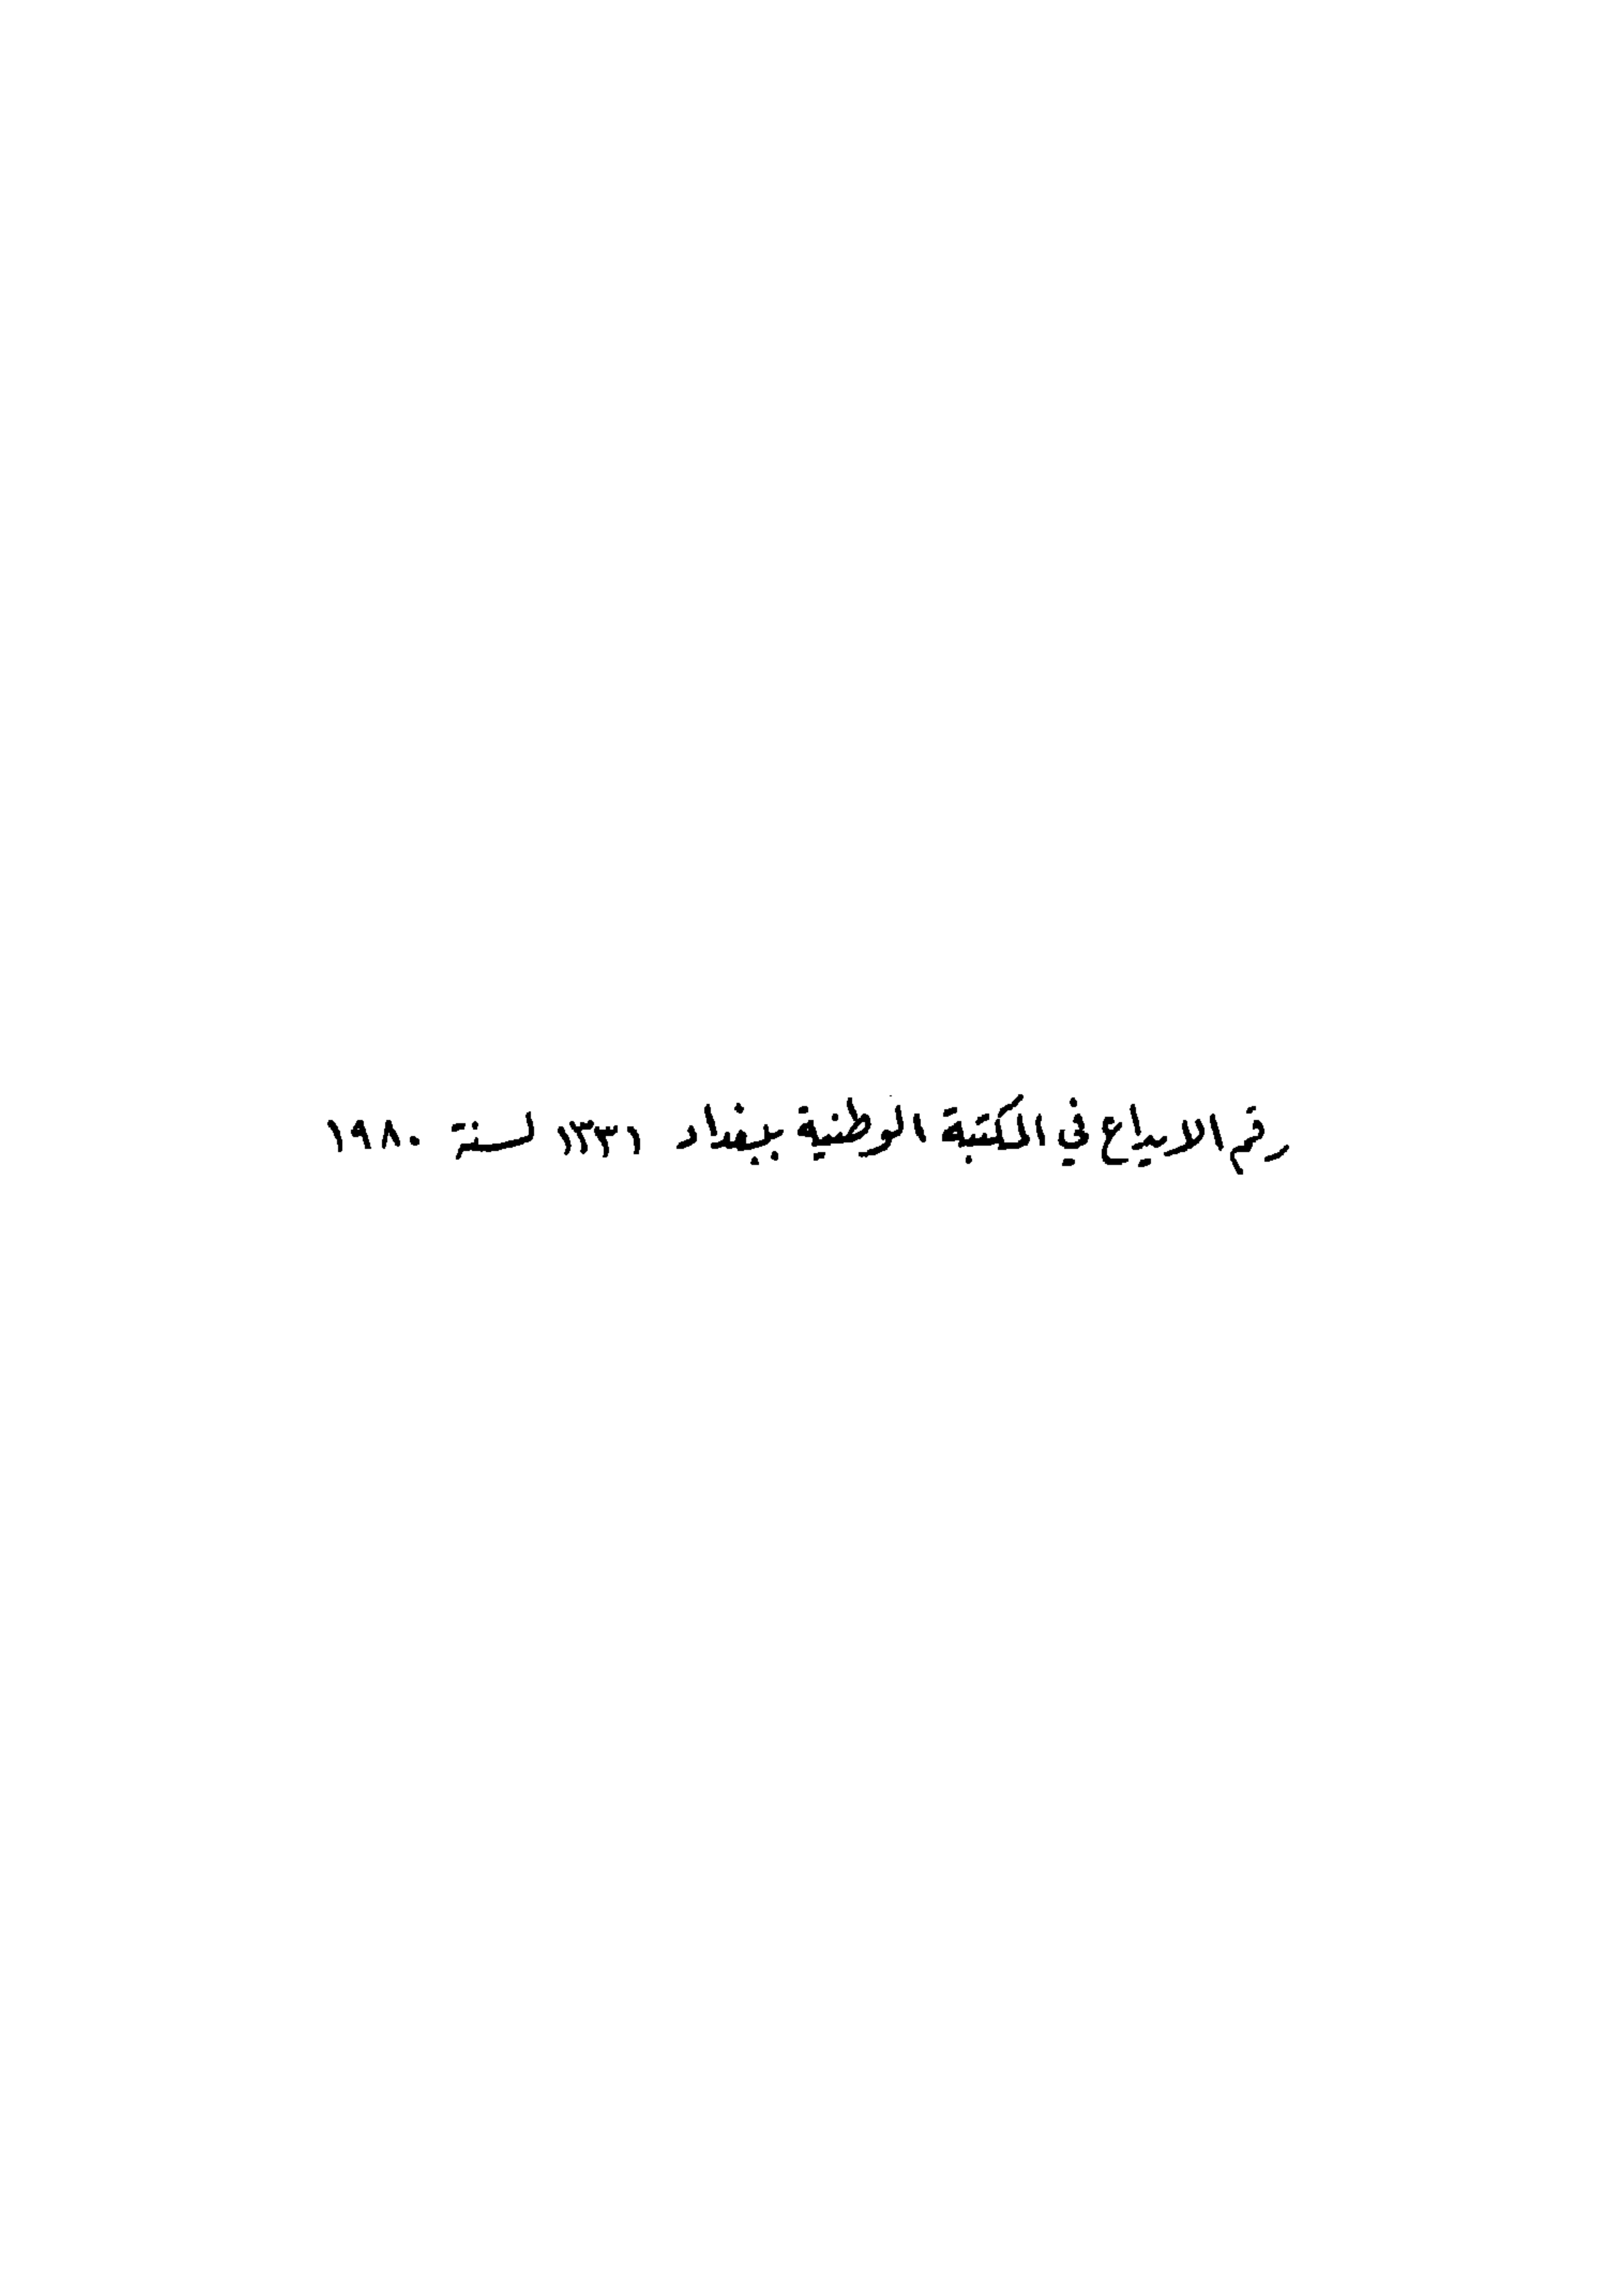 رقم الايداع في المكتبة الوطنية ببغداد ١٣٣١ لسنة ١٩٨٠